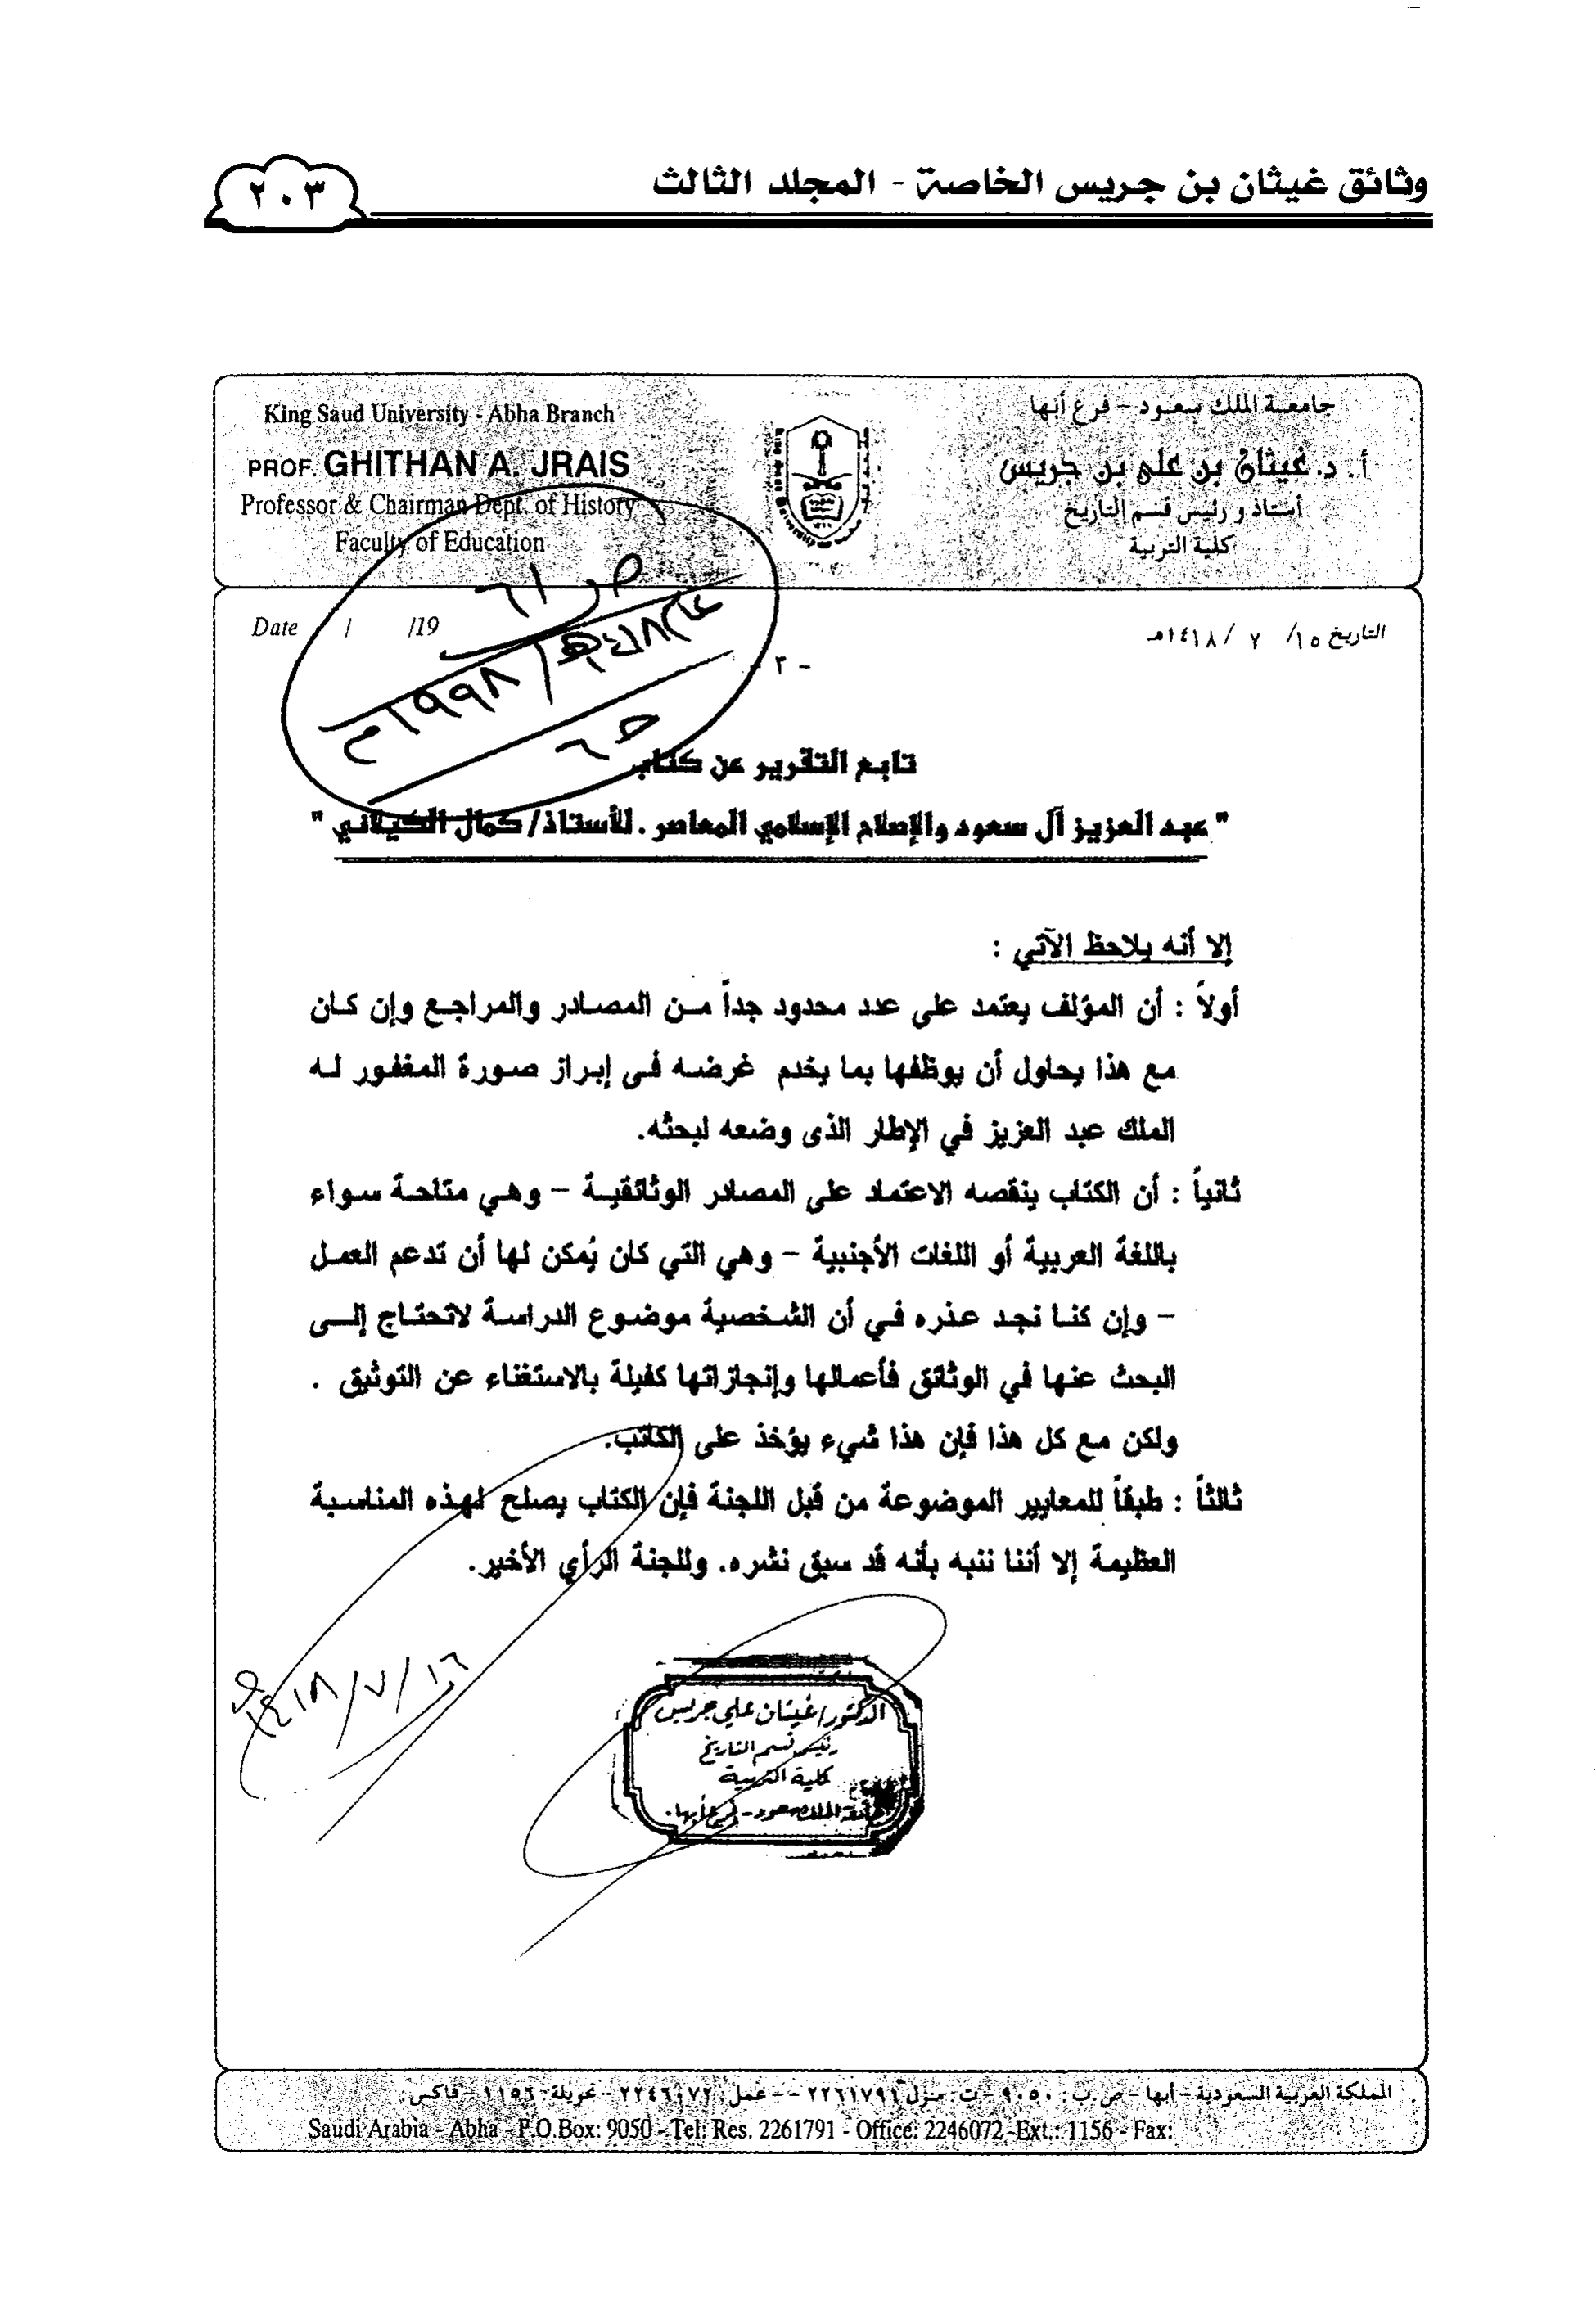 وثائق غيثان بن جريس الخاصة - المجلد الثالث
٢٠٣
جامعة الملك سعود - فرع أبها
أ. د. غيثان بن علي بن جريس
أستاذ و رئيس قسم التاريخ
كلية التربية
King Saud University - Abha Branch
PROF. GHITHAN A. JRAIS
Professor & Chairman Dept. of History
Faculty of Education
التاريخ ١٥/ ٧ /١٤١٨هـ
Date / /19
- ٢ -
١٩٩٨م
تابع التقرير عن كتاب
" عبد العزيز آل سعود والإصلاح الإسلامي المعاصر . للأستاذ/ كمال الكيلاني "
إلا أنه يلاحظ الآتي :
أولاً : أن المؤلف يعتمد على عدد محدود جداً من المصادر والمراجع وإن كان
مع هذا يحاول أن يوظفها بما يخدم غرضه فى إبراز صورة المغفور له
الملك عبد العزيز في الإطار الذى وضعه لبحثه.
ثانياً : أن الكتاب ينقصه الاعتماد على المصادر الوثائقية - وهي متاحة سواء
باللغة العربية أو اللغات الأجنبية - وهي التي كان يُمكن لها أن تدعم العمل
- وإن كنا نجد عذره في أن الشخصية موضوع الدراسة لاتحتاج إلى
البحث عنها في الوثائق فأعمالها وإنجازاتها كفيلة بالاستغناء عن التوثيق .
ولكن مع كل هذا فإن هذا شيء يؤخذ على الكاتب.
ثالثاً : طبقاً للمعايير الموضوعة من قبل اللجنة فإن الكتاب يصلح لهذه المناسبة
العظيمة إلا أننا ننبه بأنه قد سبق نشره. وللجنة الرأي الأخير.
١٦/٧/١٤١٨هـ
الدكتور/ غيثان علي جريس
رئيس قسم التاريخ
كلية التربية
جامعة الملك سعود - فرع أبها
المملكة العربية السعودية - أبها - ص.ب : ٩٠٥٠ - ت: منزل ٢٢٦١٧٩١ - - عمل : ٢٢٤٦٠٧٢ - تحويلة ١١٥٦ - فاكس :
Saudi Arabia - Abha - P.O.Box: 9050 - Tel: Res. 2261791 - Office: 2246072 -Ext.: 1156 - Fax: